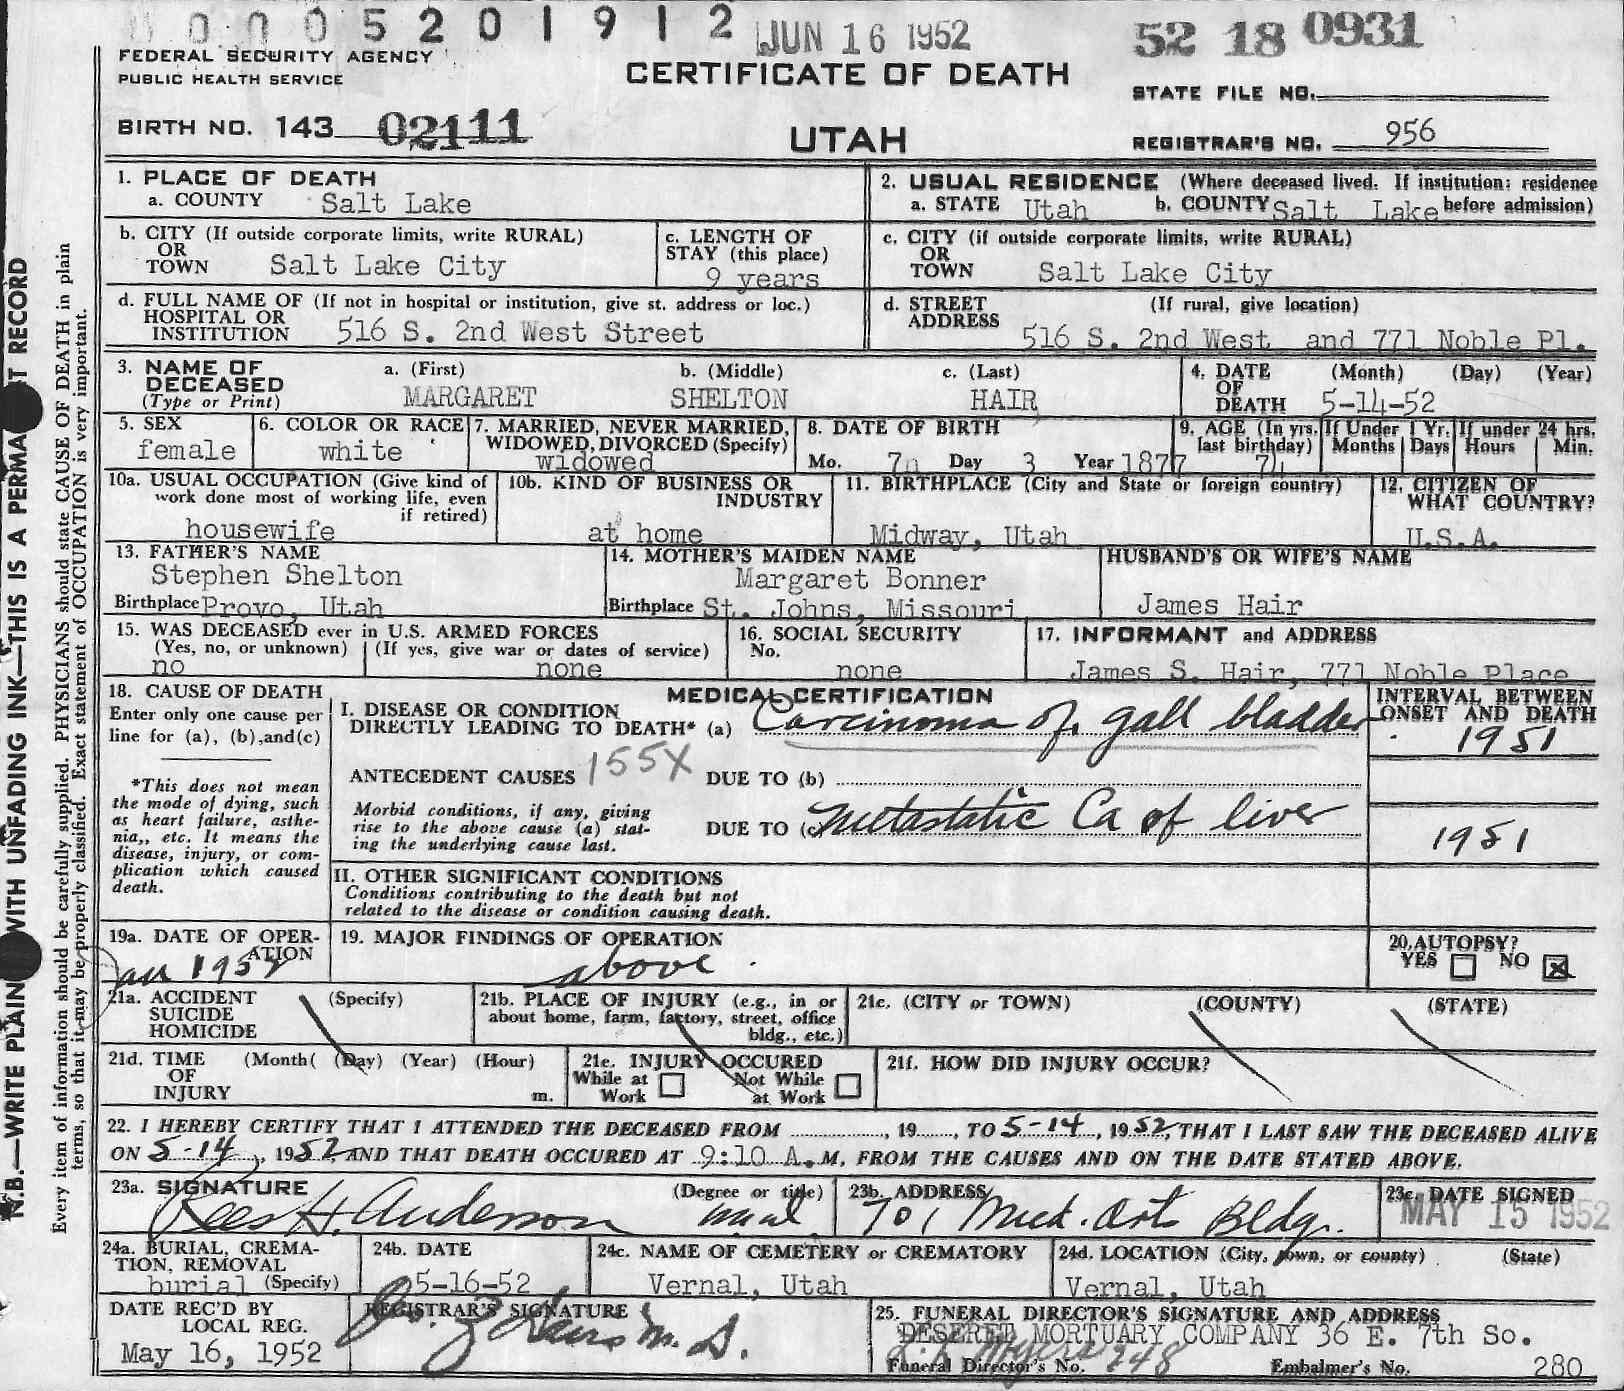 0005201912 JUN 16 1952 52 18 0931
FEDERAL SECURITY AGENCY
PUBLIC HEALTH SERVICE
CERTIFICATE OF DEATH
STATE FILE NO.
BIRTH NO. 143 02111
UTAH
REGISTRAR'S NO. 956
1. PLACE OF DEATH
a. COUNTY Salt Lake
2. USUAL RESIDENCE (Where deceased lived. If institution: residence before admission)
a. STATE Utah b. COUNTY Salt Lake
b. CITY (If outside corporate limits, write RURAL)
OR
TOWN Salt Lake City
c. LENGTH OF
STAY (this place)
9 years
c. CITY (if outside corporate limits, write RURAL)
OR
TOWN Salt Lake City
d. FULL NAME OF (If not in hospital or institution, give st. address or loc.)
HOSPITAL OR
INSTITUTION 516 S. 2nd West Street
d. STREET (If rural, give location)
ADDRESS 516 S. 2nd West and 771 Noble Pl.
3. NAME OF
DECEASED
(Type or Print)
a. (First) b. (Middle) c. (Last)
MARGARET SHELTON HAIR
4. DATE (Month) (Day) (Year)
OF
DEATH 5-14-52
5. SEX
female
6. COLOR OR RACE
white
7. MARRIED, NEVER MARRIED,
WIDOWED, DIVORCED (Specify)
widowed
8. DATE OF BIRTH
Mo. 7 Day 3 Year 1877
9. AGE (In yrs. last birthday) 74
If Under 1 Yr. Months Days
If under 24 hrs. Hours Min.
10a. USUAL OCCUPATION (Give kind of
work done most of working life, even
if retired)
housewife
10b. KIND OF BUSINESS OR
INDUSTRY
at home
11. BIRTHPLACE (City and State or foreign country)
Midway, Utah
12. CITIZEN OF
WHAT COUNTRY?
U.S.A.
13. FATHER'S NAME
Stephen Shelton
Birthplace Provo, Utah
14. MOTHER'S MAIDEN NAME
Margaret Bonner
Birthplace St. Johns, Missouri
HUSBAND'S OR WIFE'S NAME
James Hair
15. WAS DECEASED ever in U.S. ARMED FORCES
(Yes, no, or unknown) (If yes, give war or dates of service)
no none
16. SOCIAL SECURITY
No.
none
17. INFORMANT and ADDRESS
James S. Hair, 771 Noble Place
18. CAUSE OF DEATH
Enter only one cause per
line for (a), (b),and(c)
*This does not mean
the mode of dying, such
as heart failure, asthe-
nia,, etc. It means the
disease, injury, or com-
plication which caused
death.
MEDICAL CERTIFICATION
I. DISEASE OR CONDITION
DIRECTLY LEADING TO DEATH* (a) Carcinoma of gall bladder
INTERVAL BETWEEN
ONSET AND DEATH
1951
ANTECEDENT CAUSES 155X DUE TO (b)
Morbid conditions, if any, giving
rise to the above cause (a) stat-
ing the underlying cause last.
DUE TO (c) metastatic Ca of liver
1951
II. OTHER SIGNIFICANT CONDITIONS
Conditions contributing to the death but not
related to the disease or condition causing death.
19a. DATE OF OPER-
ATION
Jan 1952
19. MAJOR FINDINGS OF OPERATION
above
20. AUTOPSY?
YES NO x
21a. ACCIDENT (Specify)
SUICIDE
HOMICIDE
21b. PLACE OF INJURY (e.g., in or
about home, farm, factory, street, office
bldg., etc.)
21c. (CITY or TOWN) (COUNTY) (STATE)
21d. TIME (Month( (Day) (Year) (Hour)
OF
INJURY m.
21e. INJURY OCCURED
While at Work Not While at Work
21f. HOW DID INJURY OCCUR?
22. I HEREBY CERTIFY THAT I ATTENDED THE DECEASED FROM , 19 , TO 5-14, 1952, THAT I LAST SAW THE DECEASED ALIVE
ON 5-14, 1952, AND THAT DEATH OCCURED AT 9:10 A.M, FROM THE CAUSES AND ON THE DATE STATED ABOVE.
23a. SIGNATURE (Degree or title)
Rees H. Anderson M.D.
23b. ADDRESS
701 Med. Arts Bldg.
23c. DATE SIGNED
MAY 15 1952
24a. BURIAL, CREMA-
TION, REMOVAL
burial (Specify)
24b. DATE
5-16-52
24c. NAME OF CEMETERY or CREMATORY
Vernal, Utah
24d. LOCATION (City, town, or county) (State)
Vernal, Utah
DATE REC'D BY
LOCAL REG.
May 16, 1952
REGISTRAR'S SIGNATURE
M.D.
25. FUNERAL DIRECTOR'S SIGNATURE AND ADDRESS
DESERET MORTUARY COMPANY 36 E. 7th So.
Funeral Director's No. 248 Embalmer's No. 280
N.B.—WRITE PLAIN WITH UNFADING INK—THIS IS A PERMA T RECORD
Every item of information should be carefully supplied. PHYSICIANS should state CAUSE OF DEATH in plain
terms, so that it may be properly classified. Exact statement of OCCUPATION is very important.